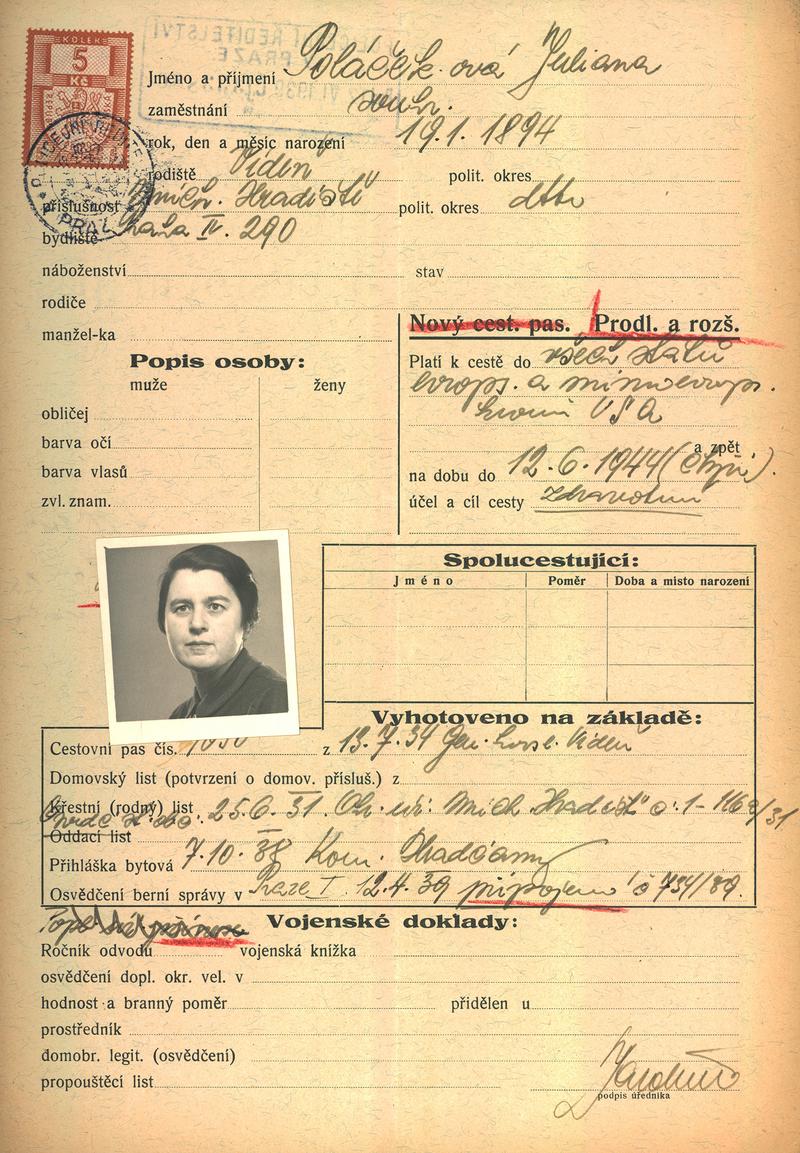 KOLEK
5
Kč
Jméno a příjmení Poláčková Juliana
zaměstnání soukr.
rok, den a měsíc narození 19.1. 1894
rodiště Vídeň polit. okres
příslušnost Mnich. Hradiště polit. okres dtto
bydliště Praha IV. 290
PRAZE
náboženství stav
rodiče
manžel-ka
Nový cest. pas. Prodl. a rozš.
Popis osoby:
muže ženy
obličej
barva očí
barva vlasů
zvl. znam.
Platí k cestě do všech států
evrops. a mimoevrop.
kromě USA
a zpět
na dobu do 12.6.1944
účel a cíl cesty zdravotní
Spolucestující:
Jméno Poměr Doba a místo narození
Vyhotoveno na základě:
Cestovní pas čís. z 13.7.34 Gen. konsul. Vídeň
Domovský list (potvrzení o domov. přísluš.) z
Křestní (rodný) list 25.6.31. Ob. úř. Mnich. Hradiště č. 1-1168/31
Oddací list
Přihláška bytová 7.10.38 Kom. Hradčany
Osvědčení berní správy v Praze I. 12.4.39 připojeno č 734/39.
Vojenské doklady:
Ročník odvodu vojenská knížka
osvědčení dopl. okr. vel. v
hodnost a branný poměr přidělen u
prostředník
domobr. legit. (osvědčení)
propouštěcí list
podpis úředníka